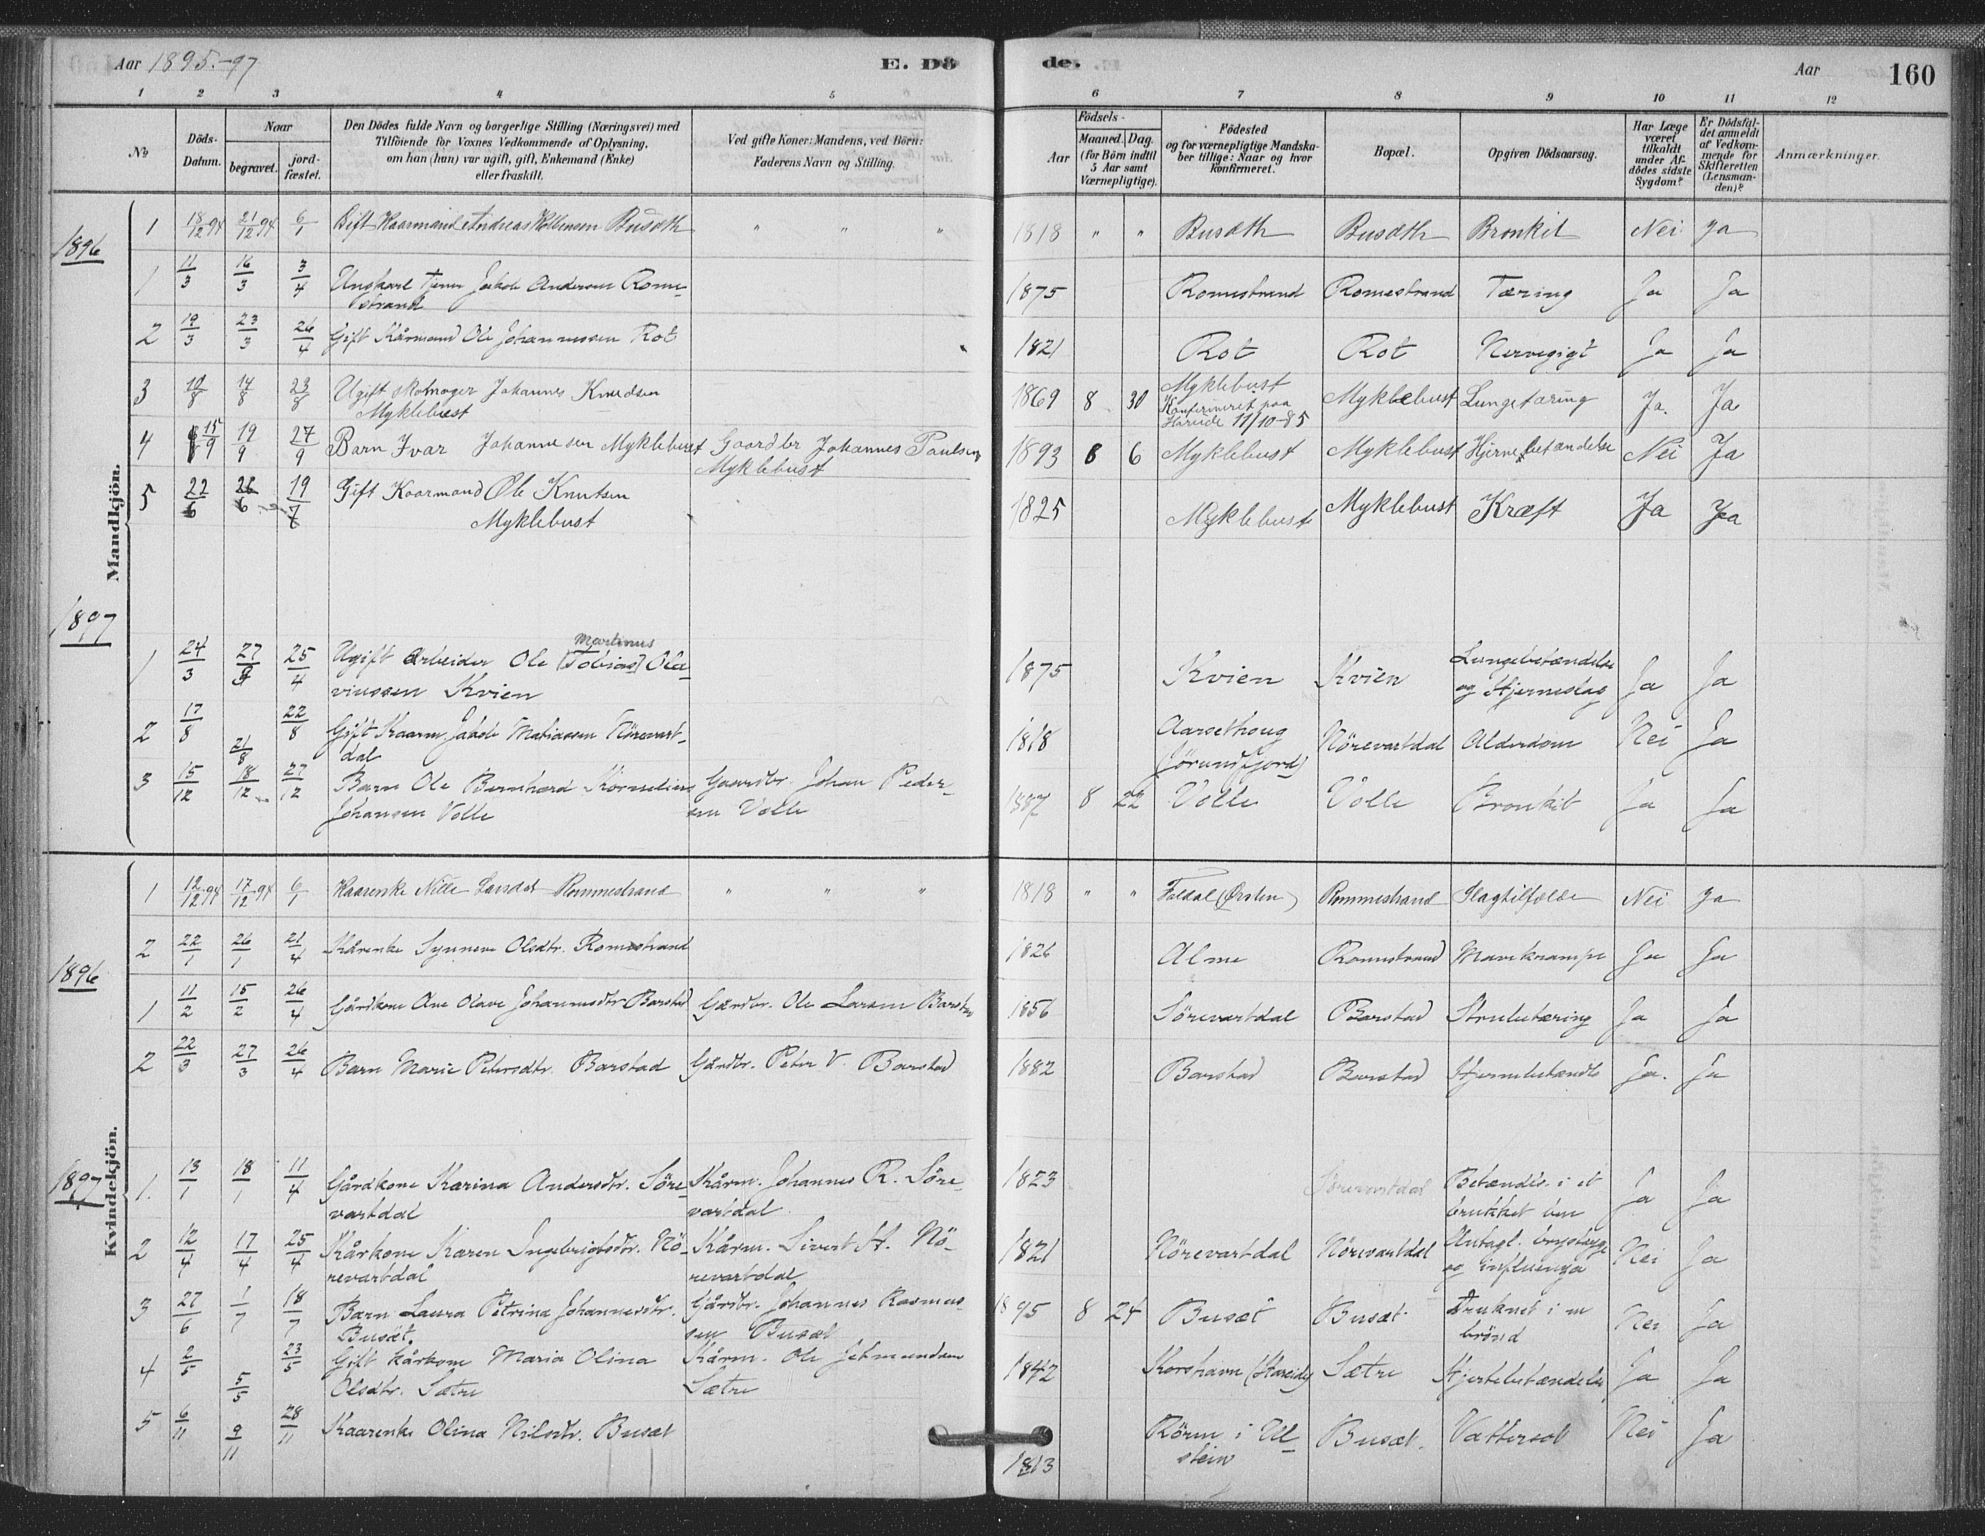 Aar 1895.-97 E. Dö de. Aar 160
1 2 3 4 5 6 7 8 9 10 11 12
No
Döds-Datum.
Naar
begravet.
jord-fæstet.
Den Dödes fulde Navn og borgerlige Stilling (Næringsvei) med
Tilföiende for Voxnes Vedkommende af Oplysning,
om han (hun) var ugift, gift, Enkemand (Enke)
eller fraskilt.
Ved gifte Koner: Mandens, ved Börn:
Faderens Navn og Stilling.
Födsels-
Aar
Maaned. Dag.
(for Börn indtil
5 Aar samt
Værnepligtige).
Födested
og for værnepligtige Mandska-
ber tillige: Naar og hvor
konfirmeret.
Bopæl.
Opgiven Dödsaarsag.
Har Læge
været
tilkaldt
under Af-
dödes sidste
Sygdom?
Er Dödsfal-
det anmeldt
af Vedkom-
mende for
Skifteretten
(Lensman-
den)?
Anmærkninger.
Mandkjön.
1 18/12 94 21/12 94 6/1 Gift Kaarmand Andreas Busæth " " " 1818 " " Busæth Busæth Bronkit Nei Ja
1896
1 11/3 16/3 3/4 Ungkarl Jakob Andersen Rome- 1875 Romestrand Romestrand Tæring Ja Ja
strand
2 19/3 23/3 26/4 Gift Kårmand Ole Johannessen Rot 1821 Rot Rot Nervegigt Ja Ja
3 10/8 14/8 23/8 Ugift skomager Johannes Knudsen 1869 8 30 Myklebust Myklebust Lungetæring Ja. Ja
Myklebust Konfirmeret paa
Hareide 11/10-85
4 15/9 19/9 27/9 Barn Ivar Johannesen Myklebust Gaardbr Johannes Paulsen 1893 8 6 Myklebust Myklebust Hjernebetændelse Nei Ja
Myklebust
5 22/6 26/6 19/7 Gift Kaarmand Ole Knutsen 1825 Myklebust Myklebust Kræft Ja Ja
Myklebust
1897
Martinus
1 24/3 27/3 25/4 Ugift arbeider Ole [Tobias] Ola- 1875 Kvien Kvien Lungebetændelse Ja Ja
viussen Kvien og Hjerneslag
2 17/8 21/8 22/8 Gift Kaarm. Jakob Matiassen Nörevart- 1818 Aarsethoug Nörevartdal Alderdom Nei Ja
dal (Jörundfjord)
3 15/12 18/12 27/12 Barn Ole Bernhard Kornelius Gaardbr. Johan Peder- 1887 8 22 Volle Volle Bronkit Ja Ja
Johansen Volle sen Volle
Kvindekjön.
1 12/12 94 17/12 94 6/1 Kaarenke Rommestrand " " " 1818 " " (Örsten) Rommestrand Slagtilfælde Nei Ja
2 22/1 26/1 21/4 Kårenke Synneve Olsdtr. Romestrand 1826 Alme Romestrand Mavekrampe Ja Ja
1896
1 11/2 15/2 26/4 Gårdkone Ane Olave Johannesdtr Barstad Gårdbr. Ole Larsen Barstad 1856 Sörevartdal Barstad Strubetæring Ja Ja
2 22/3 27/3 26/4 Barn Marie Petersdtr. Barstad Gårdbr. Peter V. Barstad 1882 Barstad Barstad Hjernebetændls Ja. Ja
1897
1. 13/1 18/1 11/4 Gårdkone Karina Andersdtr. Söre- Kårm. Johannes R. Söre- 1823 Sörevartdal Betændls. i et Ja Ja
vartdal vartdal brukket ben
2 12/4 17/4 25/4 Kårkone Karen Ingebrigtsdtr. Nö- Kårm. Sivert A. Nö- 1821 Nörevartdal Nörevartdal Antagl. brystsyge Nei Ja
revartdal revartdal og influenza
3 27/6 1/7 18/7 Barn Laura Petrina Johannesdtr. Gårdbr. Johannes Rasmus- 1895 8 24 Busæt Busæt Druknet i en Nei Ja
Busæt. sen Busæt brönd
4 2/5 5/5 23/5 Gift kårkone Maria Olina Kårm. Ole Jetmundsen 1842 Korshavn (Hareide) Sætre Hjertebetændelse Ja Ja
Olsdtr. Sætre Sætre
5 6/11 9/11 28/11 Kaarenke Olina Nilsdtr. Busæt 1813 Rörm i Ul- Busæt. Vattersot Nei Ja
stein